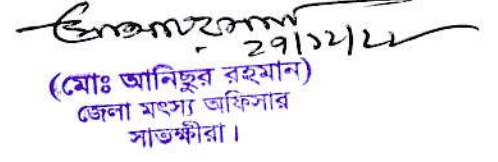 ২৭/১২/২২
(মোঃ আনিছুর রহমান)
জেলা মৎস্য অফিসার
সাতক্ষীরা।